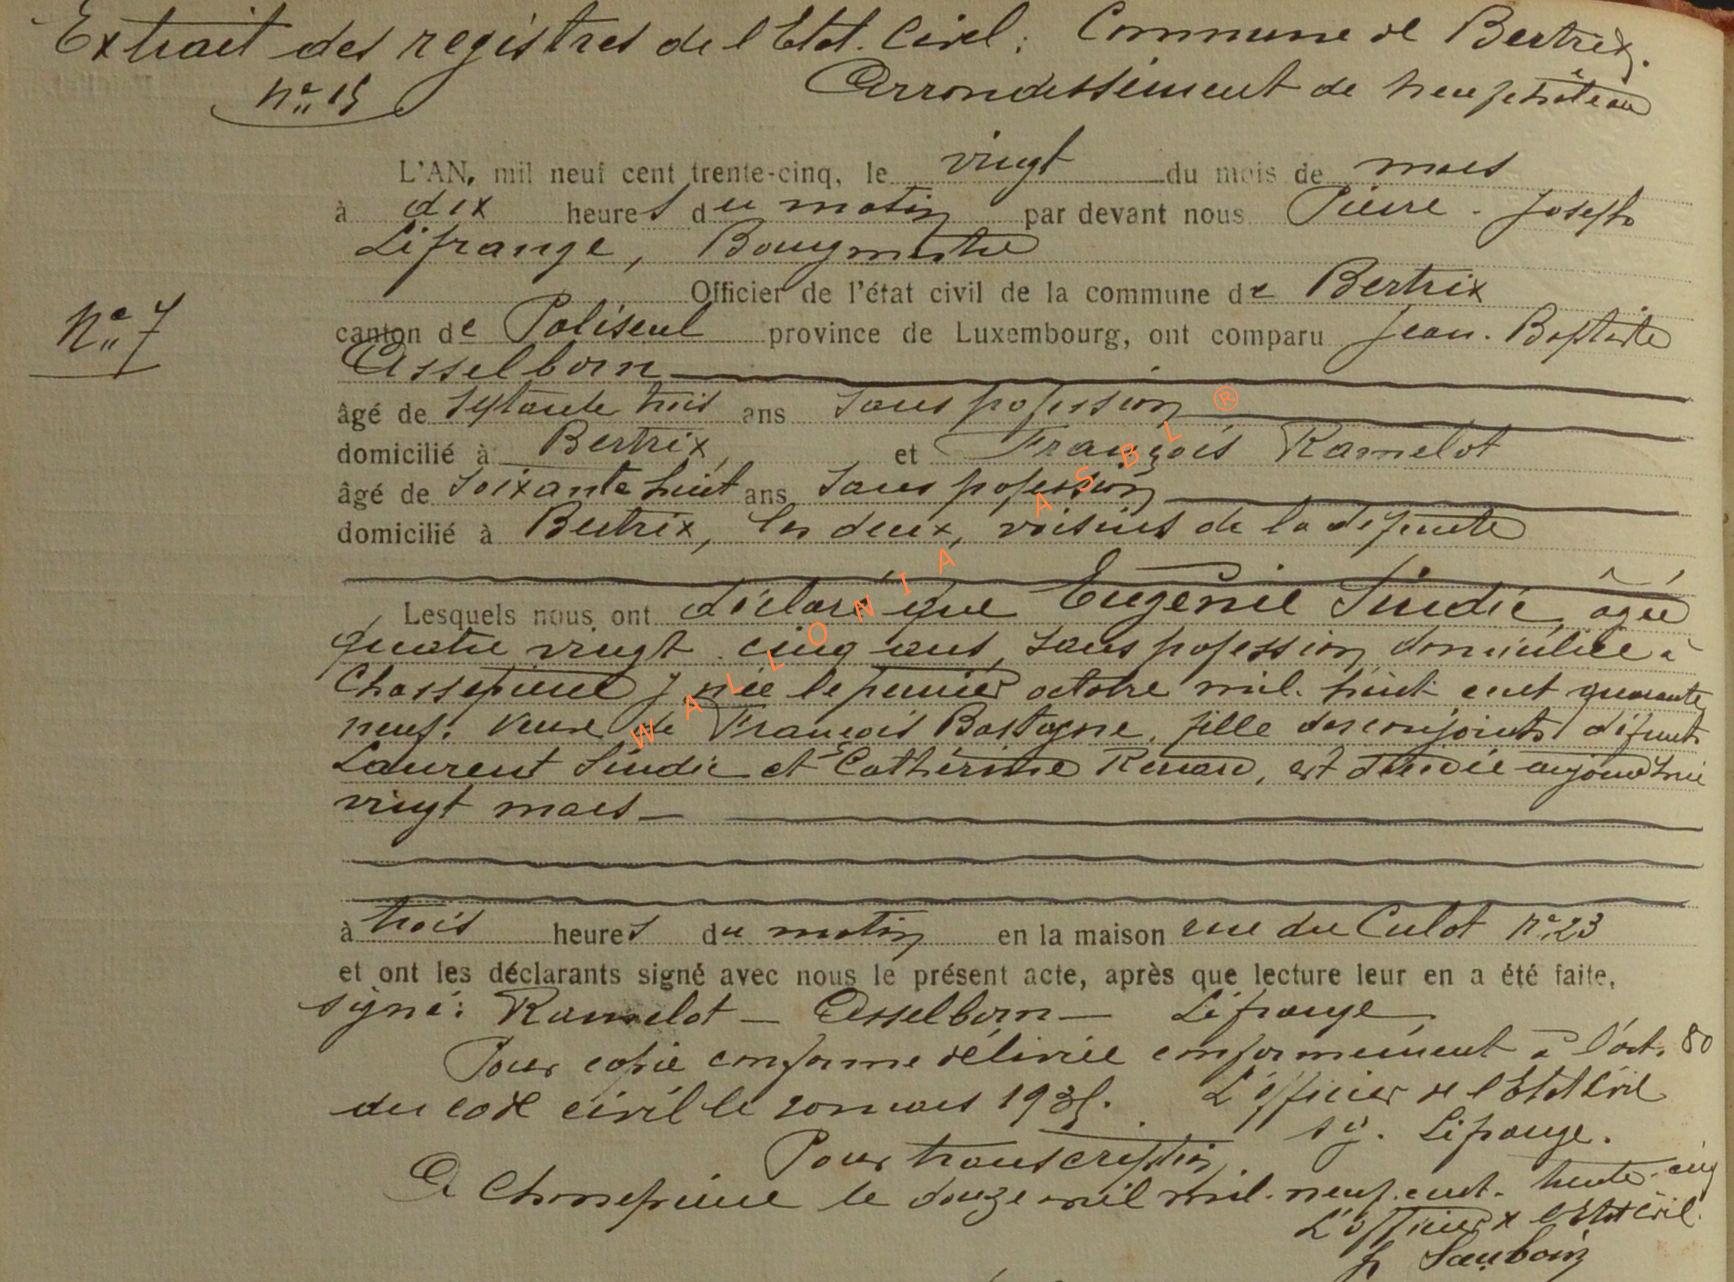 Extrait des registres de l'Etat. Civil : Commune de Bertrix.
n° 15
Arrondissement de Neufchâteau
L'AN, mil neuf cent trente-cinq, le vingt du mois de mars
à dix heures du matin par devant nous Pierre - Joseph
Lifrange, Bourgmestre
Officier de l'état civil de la commune de Bertrix
N° 7
canton de Paliseul province de Luxembourg, ont comparu Jean - Baptiste
Asselborn
âgé de septante trois ans sans profession
domicilié à Bertrix, et François Ramelot
âgé de soixante huit ans sans profession
domicilié à Bertrix, les deux, voisins de la défunte
Lesquels nous ont déclaré que Eugénie Sindic, âgée
quatre vingt cinq ans, sans profession domiciliée à
Chassepierre y née le premier octobre mil huit cent quarante
neuf. Veuve de François Bastogne, fille des conjoints défunts
Laurent Sindic et Cathérine Renard, est décédée aujourd'hui
vingt mars
à trois heures du matin en la maison rue du Culot n° 23
et ont les déclarants signé avec nous le présent acte, après que lecture leur en a été faite.
signé : Ramelot - Asselborn - Lifrange
Pour copie conforme délivrée conformément à l'art. 80
du code civil le 20 mars 1935. L'officier de l'Etat Civil
sy. Lifrange.
Pour transcription.
A Chassepierre le douze avril mil - neuf cent - trente - cinq
L'officier de l'Etat Civil.
WALLONIA ASBL ®